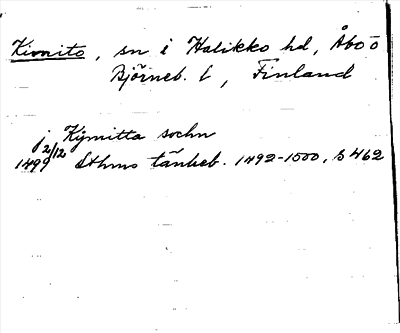 Kimito, sn i Halikko hd, Åbo o
Björneb. l, Finland
j Kymitta sochn
1499 2/12 Sthms tänkeb. 1492-1500, s 462